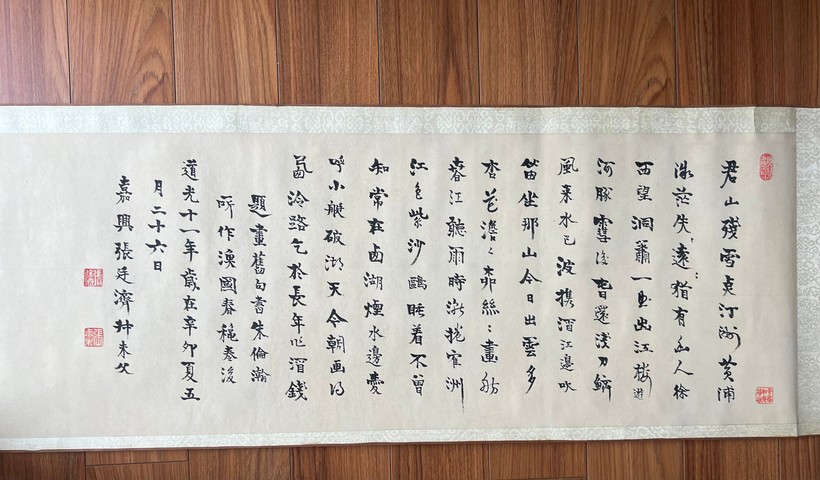 君山殘雪汀洲黃浦
茫失遠猶有幽人徐
西望洞簫一曲出江樓遊
河豚雪後春還淺刀鱭
風来水已波攜酒江邊吹
笛坐那山今日出雲多
杏花澹〻柳絲〻畫舫
春江聽雨時捲官洲
江色紫沙鷗睡着不曾
知常在西湖煙水邊愛
呼小艇破湖天今朝畫得
西泠路乞於長年作酒錢
題畫舊句書朱倫瀚
所作漁國春穐卷後
道光十一年歲在辛卯夏五
月二十六日
嘉興張廷濟叔未父